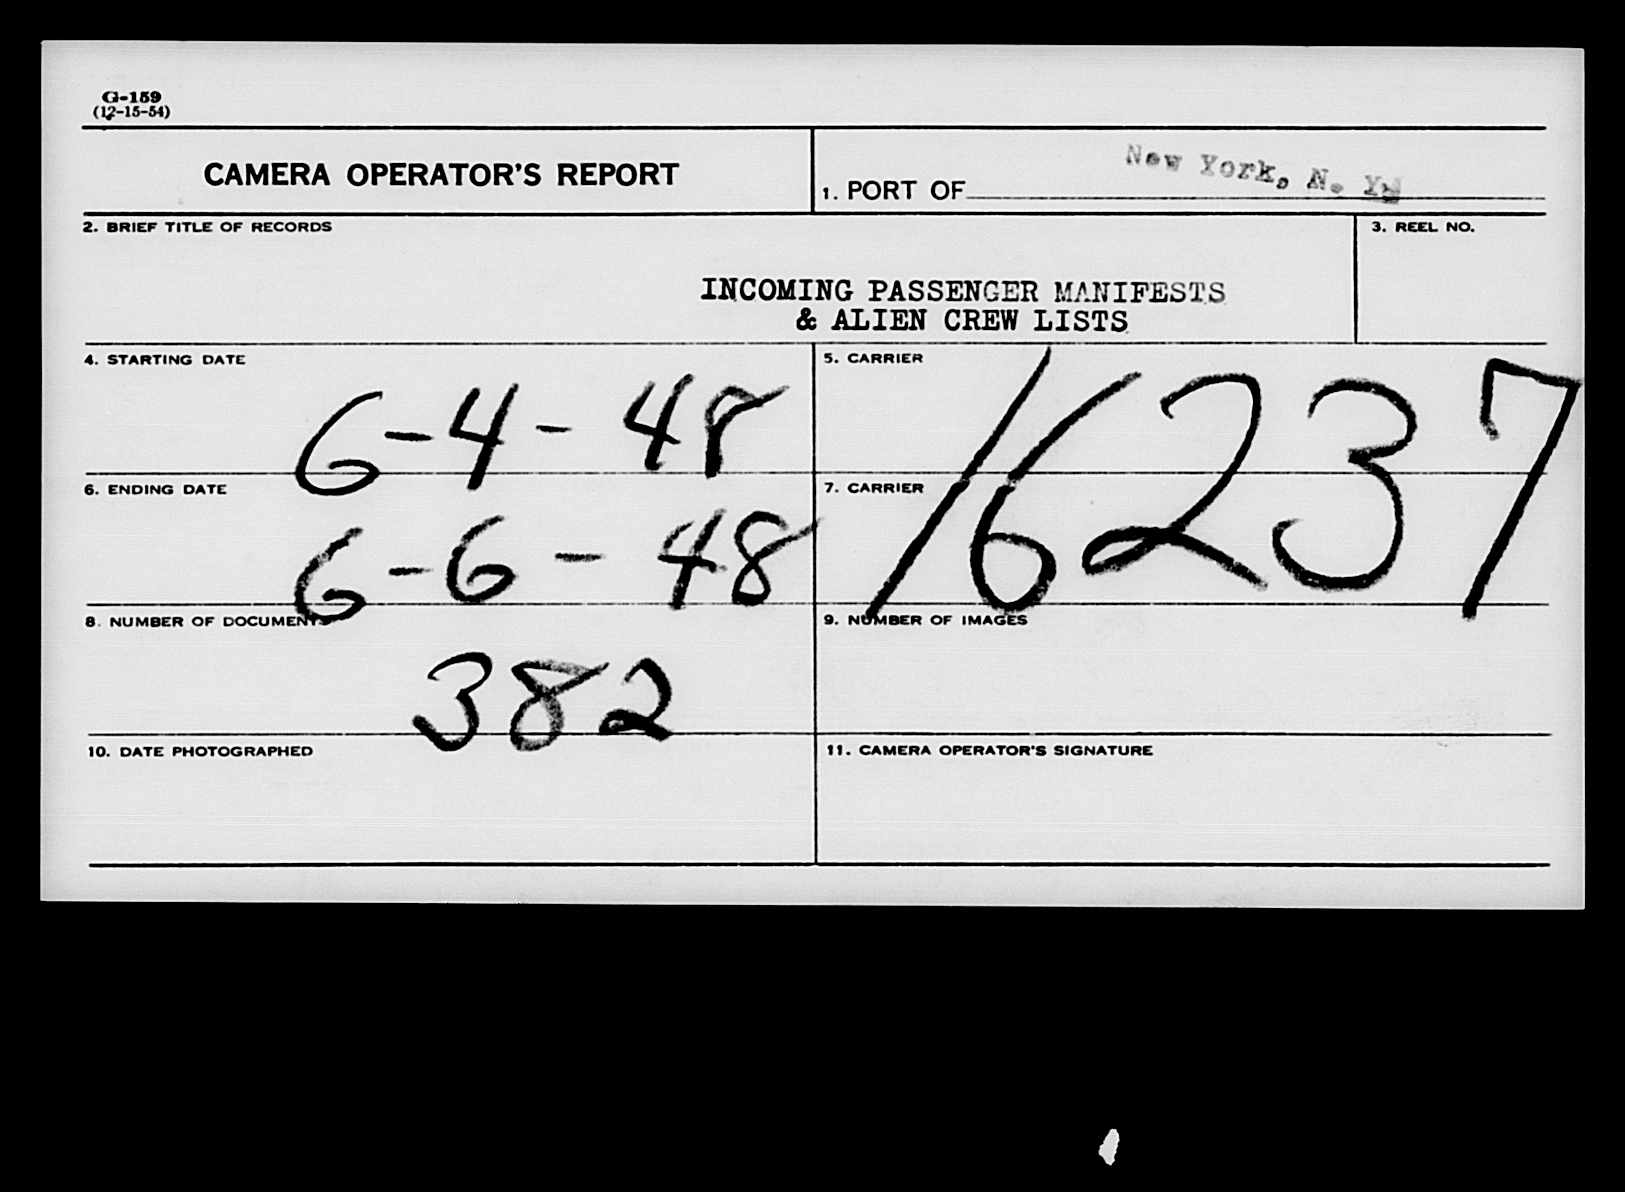 G-159
(12-15-54)
CAMERA OPERATOR'S REPORT
1. PORT OF New York, N. Y.
2. BRIEF TITLE OF RECORDS
3. REEL NO.
INCOMING PASSENGER MANIFESTS
& ALIEN CREW LISTS
4. STARTING DATE
6-4-48
5. CARRIER
16237
6. ENDING DATE
6-6-48
7. CARRIER
8. NUMBER OF DOCUMENTS
382
9. NUMBER OF IMAGES
10. DATE PHOTOGRAPHED
11. CAMERA OPERATOR'S SIGNATURE